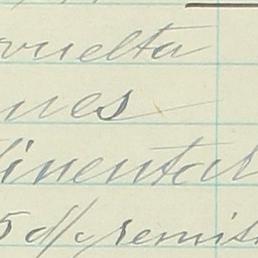 vuelta
nes
tinentar
5 d/ remis